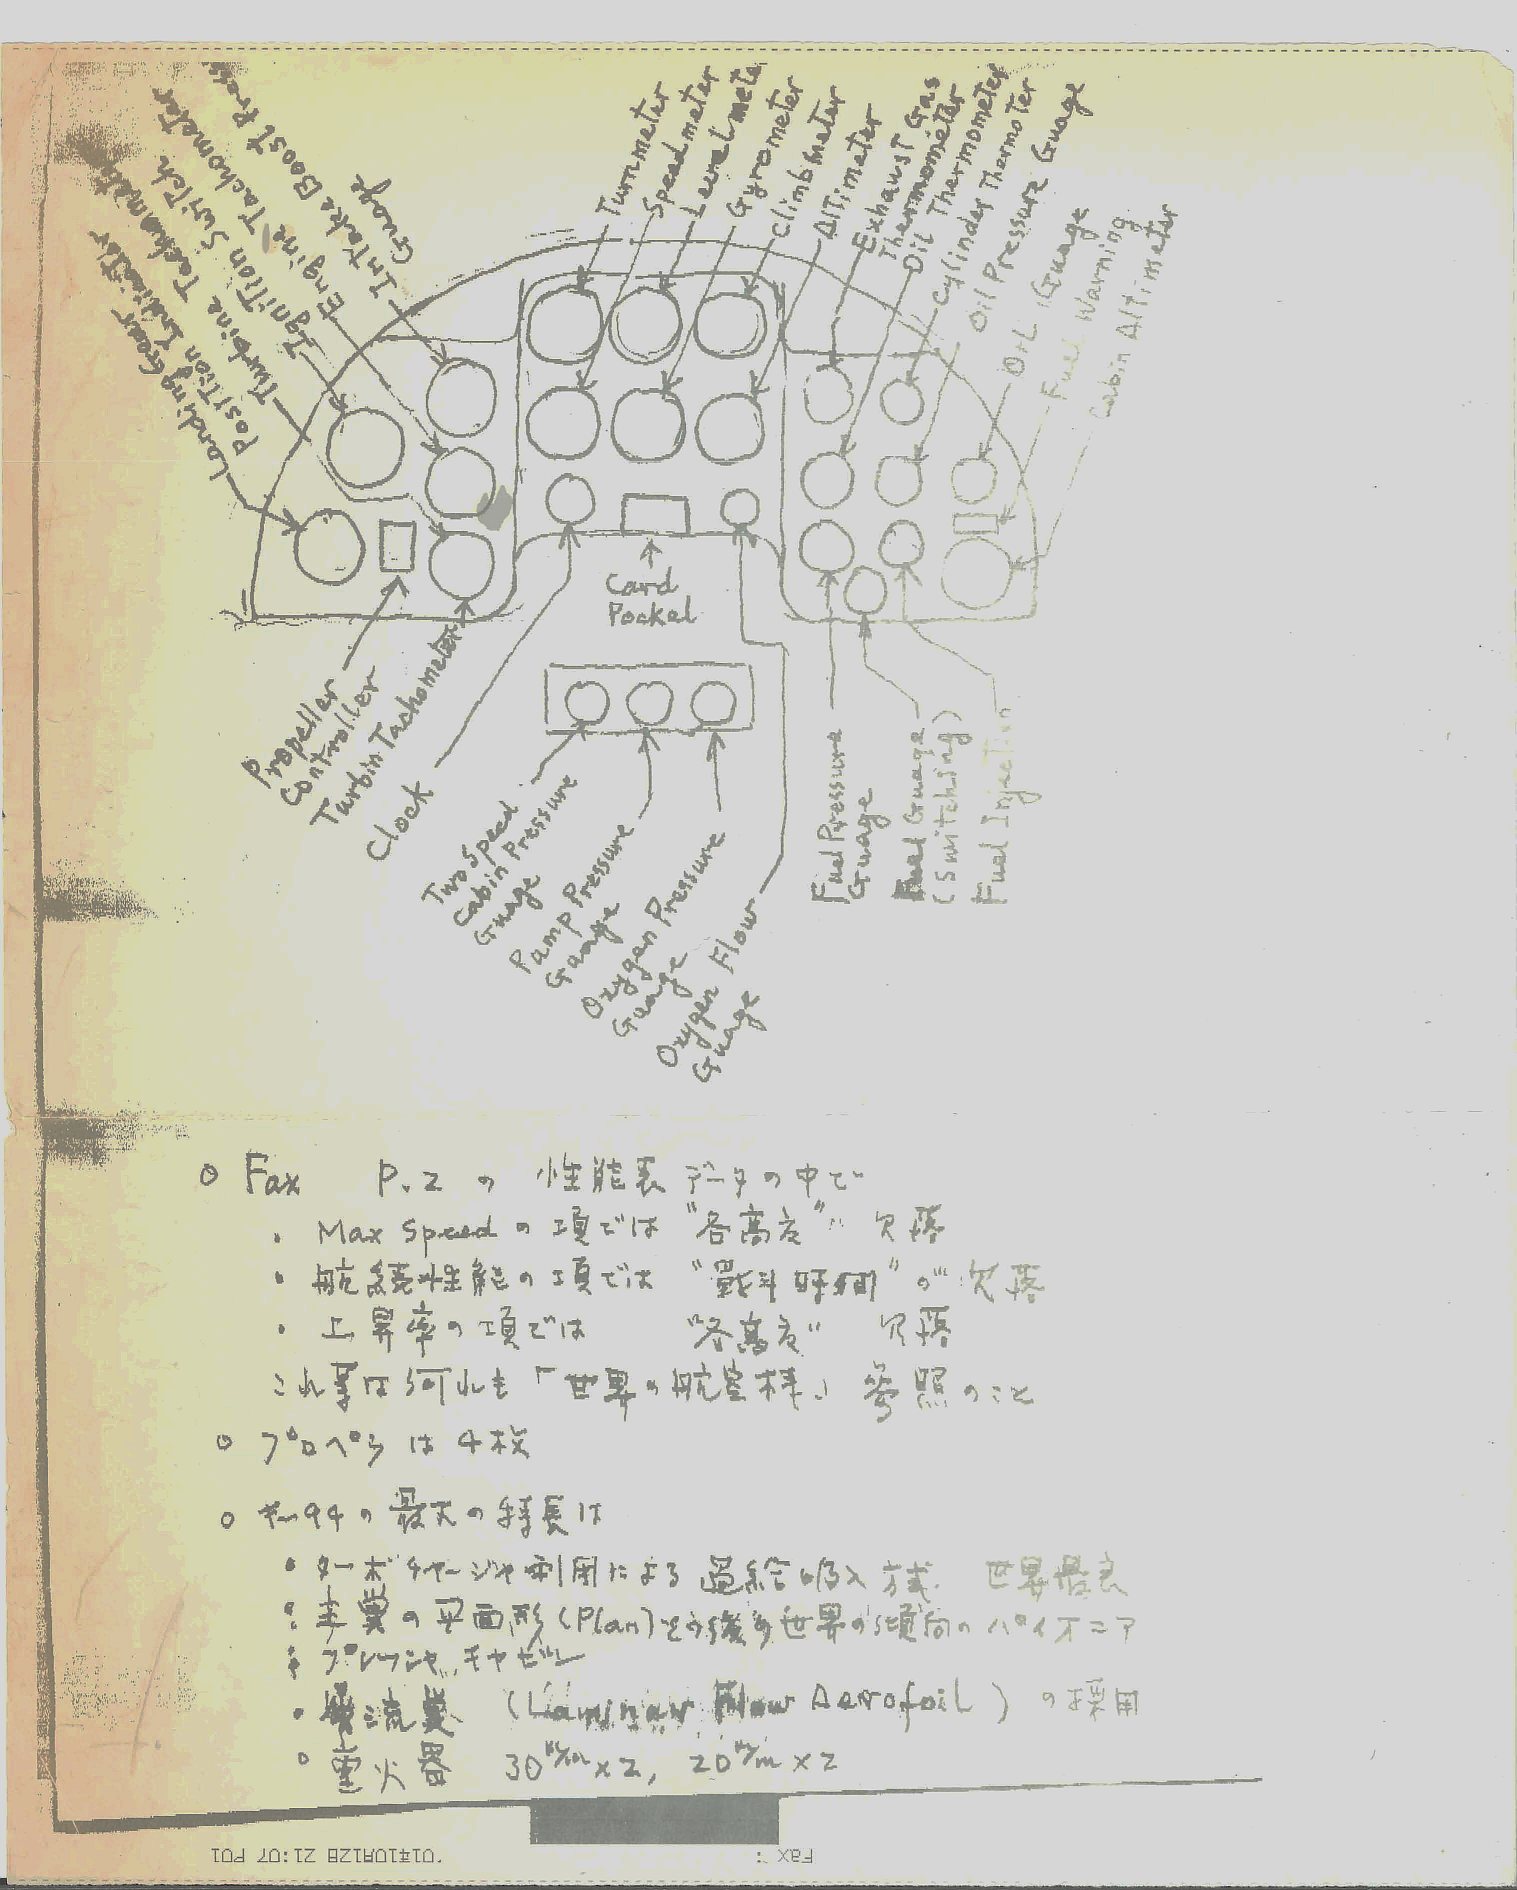 Landing Gear
Position Indicator
Turbine Tachometer
Ignition Switch
Engine Tachometer
Intake Boost Press
Guage
Turnmeter
Speedmeter
Level mete
Gyrometer
Climbmeter
Altimeter
Exhaust Gas
Thermometer
Oil Thermometer
Cylinder Thermoter
Oil Pressure Guage
OiL Guage
Fuel Warning
Cabin Altimeter
Card
Pocket
Propeller
Controller
Turbin Tachometer
Clock
Two Speed
Cabin Pressure
Guage
Pamp Pressure
Gauge
Oxygen Pressure
Guage
Oxygen Flow
Guage
Fuel Pressure
Guage
Fuel Guage
(Switching)
Fuel Injection
○ Fax P.2 の 性能表 データの中で
・ Max Speed の項では "各高度" 欠落
・ 航続性能の項では "戦斗時間" が欠落
・ 上昇率の項では "各高度" 欠落
これ等は何れも「世界の航空機」参照のこと
○ プロペラは4枚
○ キ-94の最大の特長は
・ターボチャージャ利用による過給吸入方式. 世界最高
・主翼の平面形(Plan)その後の世界の傾向のパイオニア
・プレッシャ キャビン
・層流翼 (Laminar Flow Aerofoil) の採用
・重火器 30m/m×2, 20m/m×2
Fax :
'01年10月12日 21:07 P01